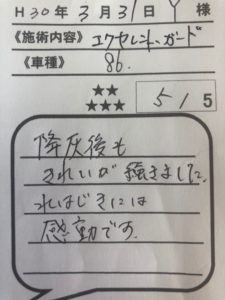 H30年 3月31日 Y 様
《施術内容》 エクセレント・ガード
《車種》 86.
★★
★★★ 5 / 5
降灰後も
きれいが続きました。
水はじきには
感動です